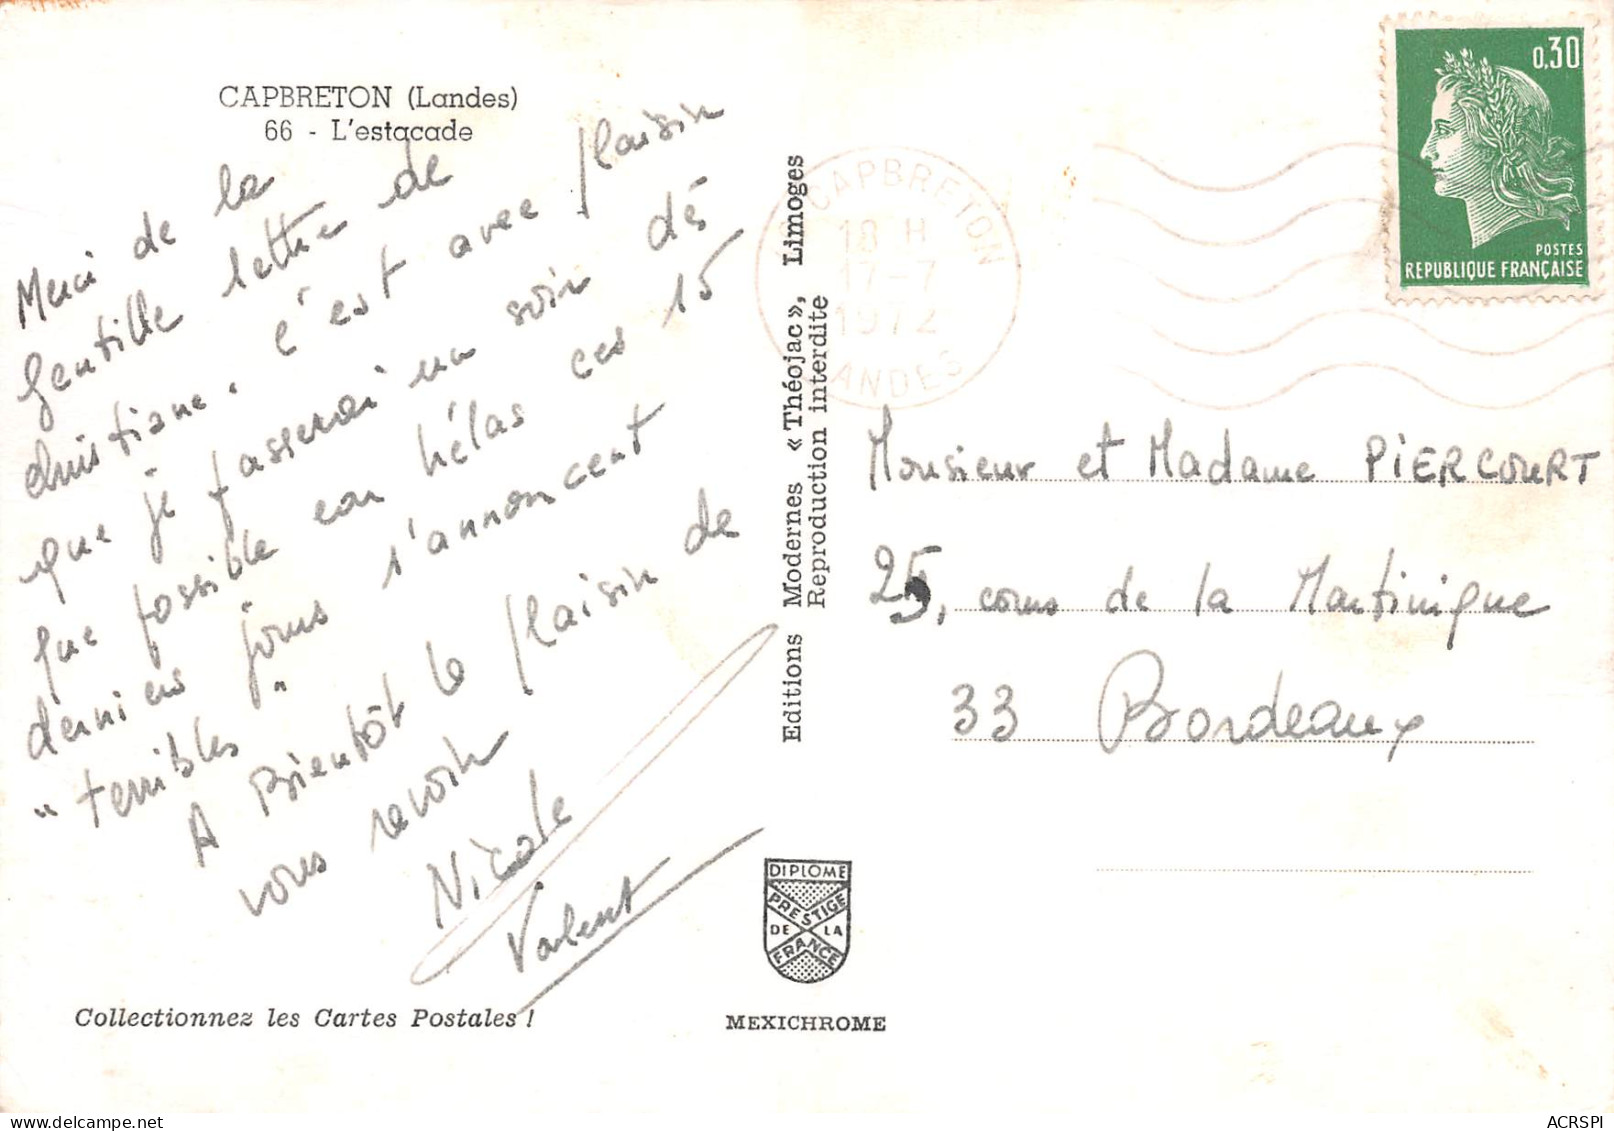 CAPBRETON (Landes)
66 - L'estacade
Merci de la
gentille lettre de
christiane. c'est avec plaisir
que je passerai un soir dès
que possible car hélas ces 15
derniers jours s'annoncent
"terribles"
A Bientôt le plaisir de
vous revoir
Nicole
Editions Modernes « Théojac », Limoges
Reproduction interdite
CAPBRETON
18 H
17-7
1972
LANDES
0,30
POSTES
REPUBLIQUE FRANÇAISE
Monsieur et Madame PIERCOURT
25, cours de la Martinique
33 Bordeaux
DIPLOME
PRESTIGE
DE LA
FRANCE
Collectionnez les Cartes Postales !
MEXICHROME
ACRSPI